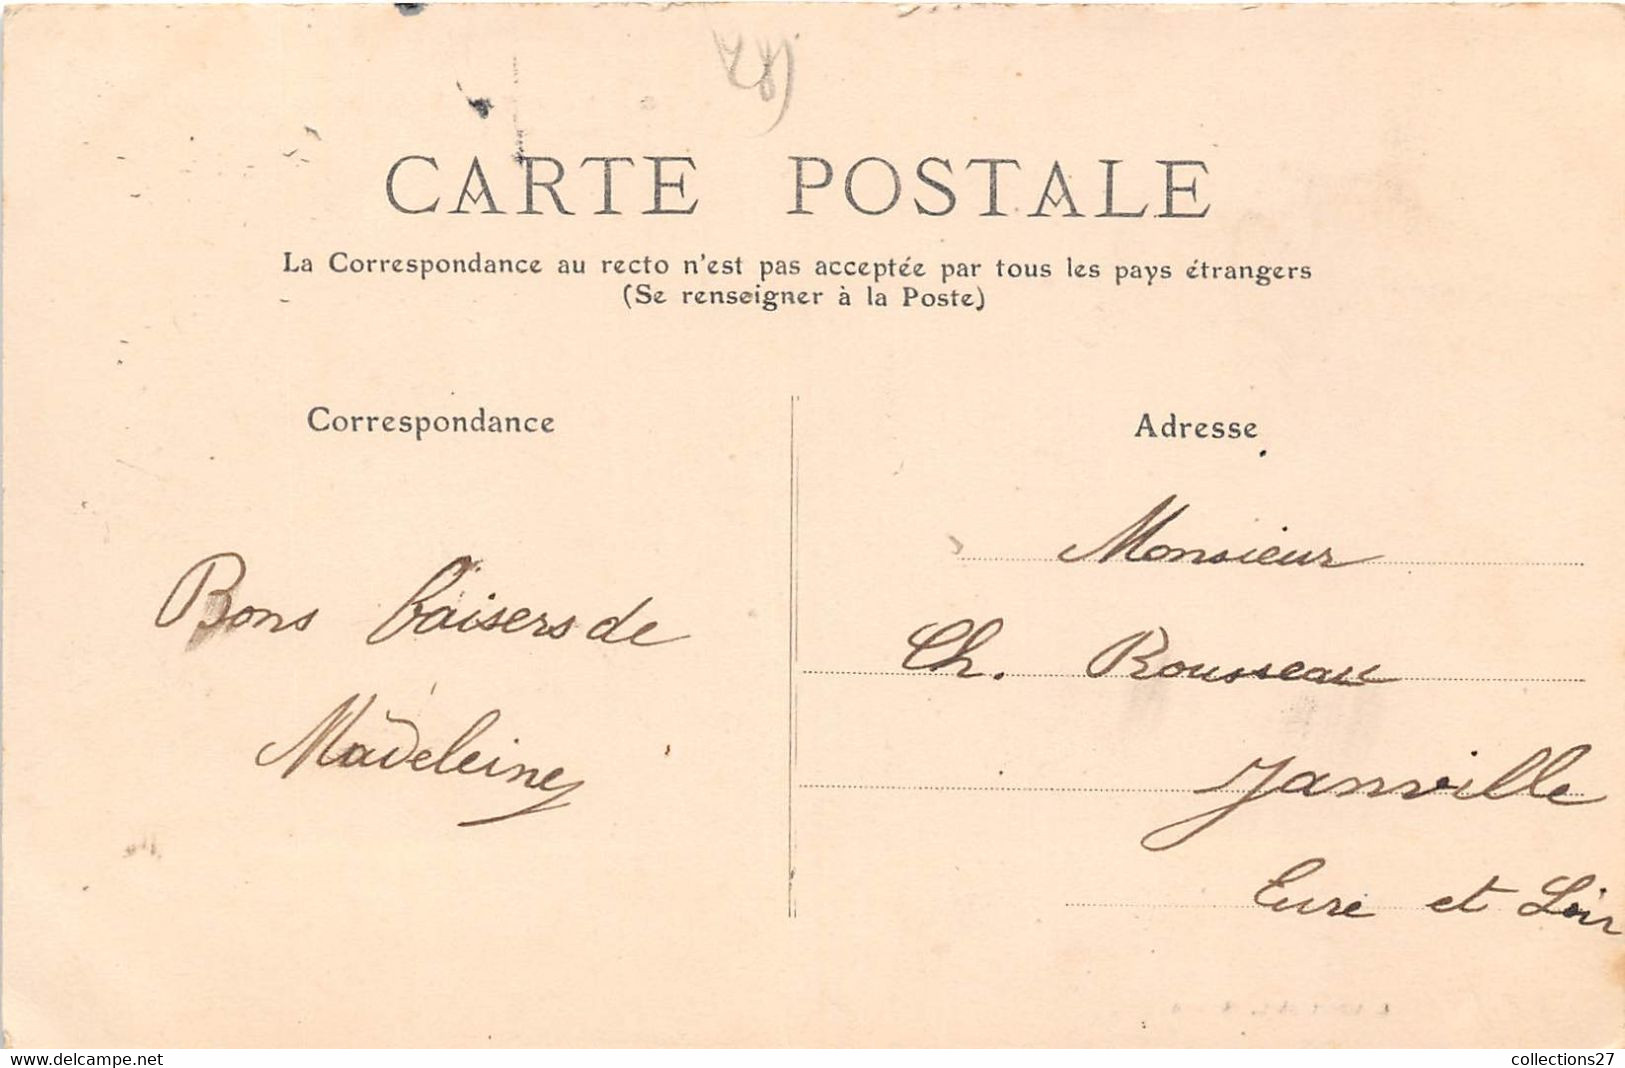 (28)
CARTE POSTALE
La Correspondance au recto n'est pas acceptée par tous les pays étrangers
(Se renseigner à la Poste)
Correspondance
Bons baisers de
Madeleine
Adresse
Monsieur
Ch. Rousseau
Janville
Eure et Loir
www.delcampe.net
collections27